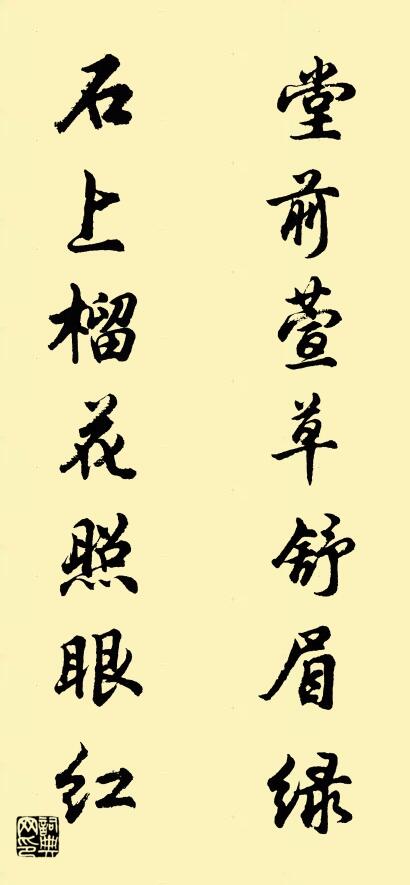 堂前萱草舒眉绿
石上榴花照眼红
詞典网印